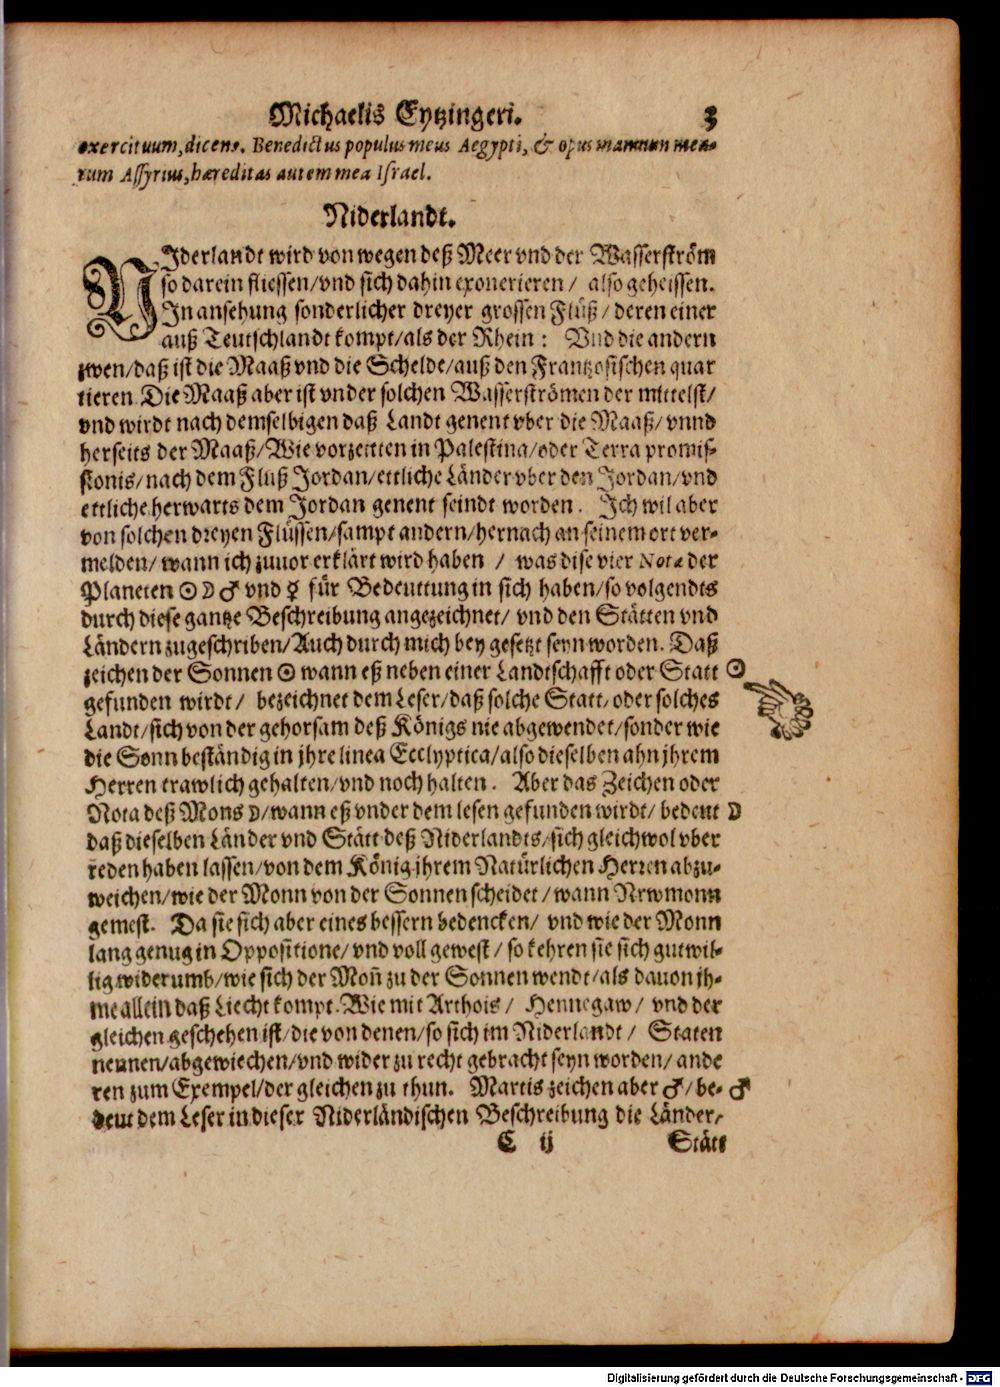 Michaelis Eytzingeri. 3
exercituum, dicens. Benedictus populus meus Aegypti, & opus manuum mea-
rum Assyrius, hæreditas autem mea Israel.
Niderlandt.
NIderlandt wird von wegen deß Meer vnd der Wasserström
so darein fliessen/vnd sich dahin exonerieren/ also geheissen.
In ansehung sonderlicher dreyer grossen Flüß/ deren einer
auß Teutschlandt kompt/als der Rhein: Vnd die andern
zwen/daß ist die Maaß vnd die Schelde/auß den Frantzosischen quar
tieren. Die Maaß aber ist vnder solchen Wasserströmen der mittelst/
vnd wirdt nach demselbigen daß Landt genent vber die Maaß/ vnnd
herseits der Maaß/Wie vorzeitten in Palestina/oder Terra promiss-
sionis/nach dem Fluß Jordan/ettliche Länder vber den Jordan/vnd
ettliche herwarts dem Jordan genent seindt worden. Ich wil aber
von solchen dreyen Flüssen/sampt andern/hernach an seinem ort ver-
melden/ wann ich zuuor erklärt wird haben / was dise vier Notæ der
Planeten ☉ ☽ ♂ vnd ☿ für Bedeuttung in sich haben/so volgendts
durch diese gantze Beschreibung angezeichnet/ vnd den Stätten vnd
Ländern zugeschriben/Auch durch mich bey gesetzt seyn worden. Daß
zeichen der Sonnen ☉ wann eß neben einer Landtschafft oder Statt ☉
gefunden wirdt/ bezeichnet dem Leser/daß solche Statt/oder solches
Landt/sich von der gehorsam deß Königs nie abgewendet/sonder wie
die Sonn beständig in jhre linea Ecclyptica/also dieselben ahn jhrem
Herren trawlich gehalten/vnd noch halten. Aber das Zeichen oder
Nota deß Mons ☽/wann eß vnder dem lesen gefunden wirdt/ bedeut ☽
daß dieselben Länder vnd Stätt deß Niderlandts/sich gleichwol vber
reden haben lassen/von dem König jhrem Natürlichen Herren abzu-
weichen/wie der Monn von der Sonnen scheidet/wann Newmonn
gemest. Da sie sich aber eines bessern bedencken/ vnd wie der Monn
lang genug in Oppositione/vnd voll gewest/ so kehren sie sich gutwil-
lig widerumb/wie sich der Moñ zu der Sonnen wendt/als dauon jh-
me allein daß Liecht kompt. Wie mit Arthois/ Hennegaw/ vnd der
gleichen geschehen ist/die von denen/so sich im Niderlandt/ Staten
nennen/abgewiechen/vnd wider zu recht gebracht seyn worden/ ande
ren zum Exempel/der gleichen zu thun. Martis zeichen aber ♂/ be- ♂
deut dem Leser in dieser Niderländischen Beschreibung die Länder/
C ij Stätt
Digitalisierung gefördert durch die Deutsche Forschungsgemeinschaft - DFG